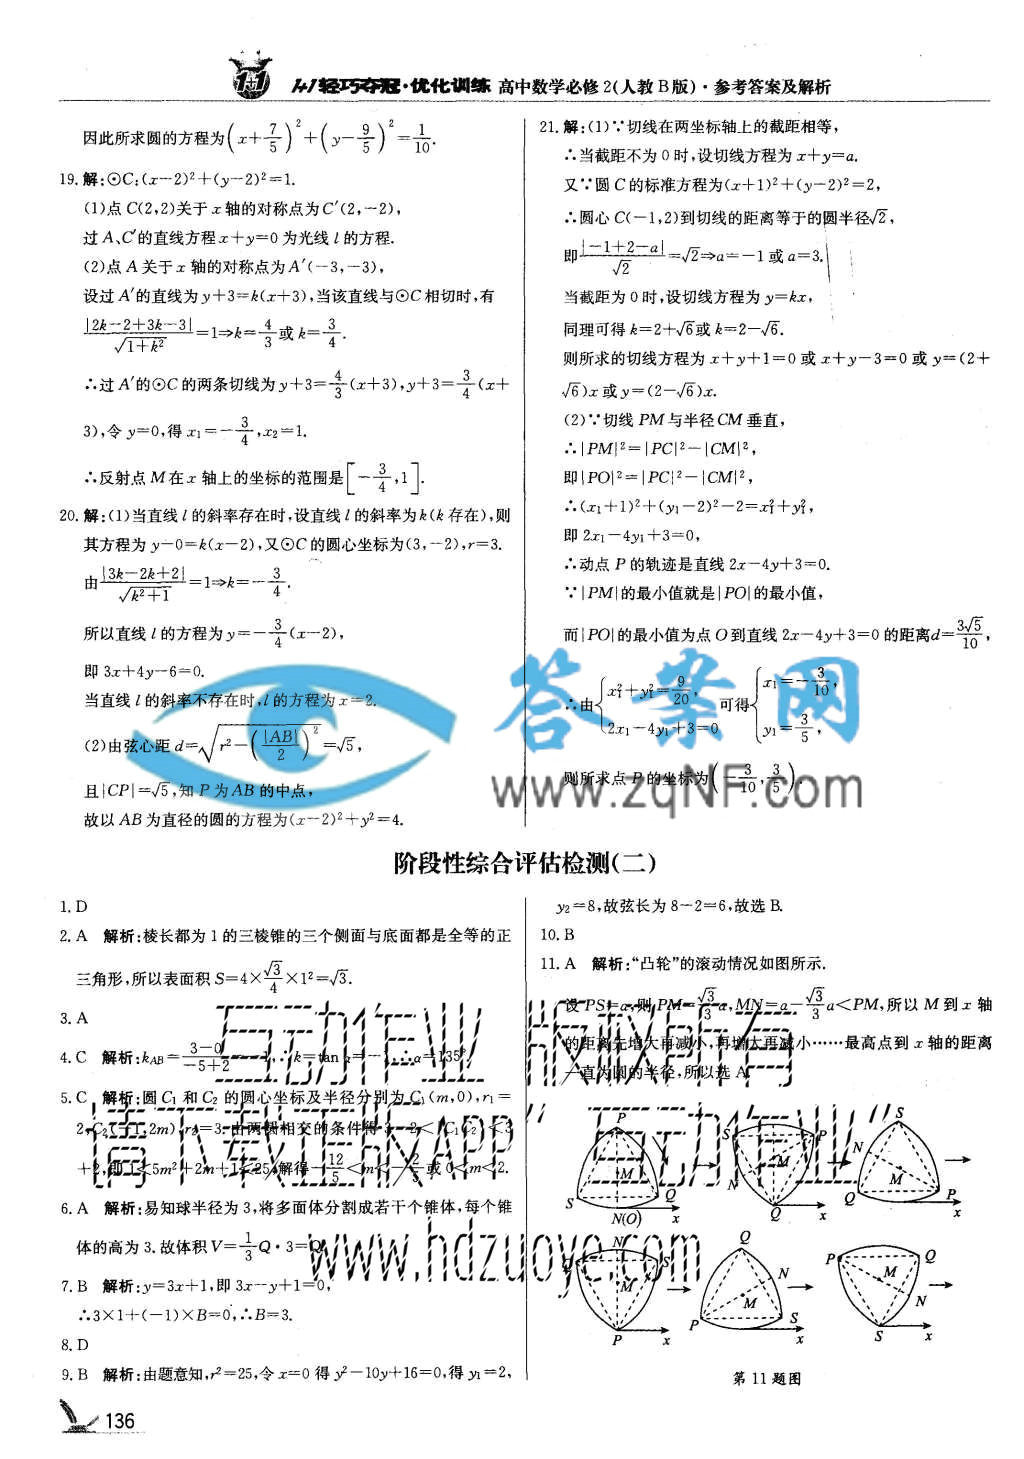 1+1轻巧夺冠·优化训练 高中数学必修2(人教B版)·参考答案及解析
因此所求圆的方程为(x+7/5)²+(y-9/5)²=1/10.
19.解:⊙C:(x-2)²+(y-2)²=1.
(1)点C(2,2)关于x轴的对称点为C′(2,-2),
过A、C′的直线方程x+y=0为光线l的方程.
(2)点A关于x轴的对称点为A′(-3,-3),
设过A′的直线为y+3=k(x+3),当该直线与⊙C相切时,有
|2k-2+3k-3|/√(1+k²)=1⇒k=4/3或k=3/4.
∴过A′的⊙C的两条切线为y+3=4/3(x+3),y+3=3/4(x+
3),令y=0,得x₁=-3/4,x₂=1.
∴反射点M在x轴上的坐标的范围是[-3/4,1].
20.解:(1)当直线l的斜率存在时,设直线l的斜率为k(k存在),则
其方程为y-0=k(x-2),又⊙C的圆心坐标为(3,-2),r=3.
由|3k-2k+2|/√(k²+1)=1⇒k=-3/4.
所以直线l的方程为y=-3/4(x-2),
即3x+4y-6=0.
当直线l的斜率不存在时,l的方程为x=2.
(2)由弦心距d=√(r²-(|AB|/2)²)=√5,
且|CP|=√5,知P为AB的中点,
故以AB为直径的圆的方程为(x-2)²+y²=4.
21.解:(1)∵切线在两坐标轴上的截距相等,
∴当截距不为0时,设切线方程为x+y=a.
又∵圆C的标准方程为(x+1)²+(y-2)²=2,
∴圆心C(-1,2)到切线的距离等于的圆半径√2,
即|-1+2-a|/√2=√2⇒a=-1或a=3.
当截距为0时,设切线方程为y=kx,
同理可得k=2+√6或k=2-√6.
则所求的切线方程为x+y+1=0或x+y-3=0或y=(2+
√6)x或y=(2-√6)x.
(2)∵切线PM与半径CM垂直,
∴|PM|²=|PC|²-|CM|²,
即|PO|²=|PC|²-|CM|²,
∴(x₁+1)²+(y₁-2)²-2=x₁²+y₁²,
即2x₁-4y₁+3=0,
∴动点P的轨迹是直线2x-4y+3=0.
∵|PM|的最小值就是|PO|的最小值,
而|PO|的最小值为点O到直线2x-4y+3=0的距离d=3√5/10,
∴由{x₁²+y₁²=9/20, 2x₁-4y₁+3=0 可得{x₁=-3/10, y₁=3/5,
则所求点P的坐标为(-3/10,3/5).
答案网
www.zqNF.com
阶段性综合评估检测(二)
1.D
2.A 解析:棱长都为1的三棱锥的三个侧面与底面都是全等的正
三角形,所以表面积S=4×√3/4×1²=√3.
3.A
4.C 解析:kAB=(3-0)/(-5+2)=-1,∴k=tan α=-1,∴α=135°.
5.C 解析:圆C₁和C₂的圆心坐标及半径分别为C₁(m,0),r₁=
2,C₂(-1,2m),r₂=3.由两圆相交的条件得3-2<|C₁C₂|<3
+2,即1<5m²+2m+1<25,解得-12/5<m<-2/5或0<m<2.
6.A 解析:易知球半径为3,将多面体分割成若干个锥体,每个锥
体的高为3.故体积V=1/3Q·3=Q.
7.B 解析:y=3x+1,即3x-y+1=0,
∴3×1+(-1)×B=0,∴B=3.
8.D
9.B 解析:由题意知,r²=25,令x=0得y²-10y+16=0,得y₁=2,
y₂=8,故弦长为8-2=6,故选B.
10.B
11.A 解析:“凸轮”的滚动情况如图所示.
设PS=a,则PM=√3/3a,MN=a-√3/3a<PM,所以M到x轴
的距离先增大再减小,再增大再减小……最高点到x轴的距离
一直为圆的半径,所以选A.
P
M
S
Q
N(O)
x
S
P
M
N
Q
x
S
N
M
Q
P
x
N
Q
S
M
P
x
Q
N
M
P
S
x
P
Q
M
N
S
x
第11题图
请下载作业精灵APP”
www.hdzuoye.com
136